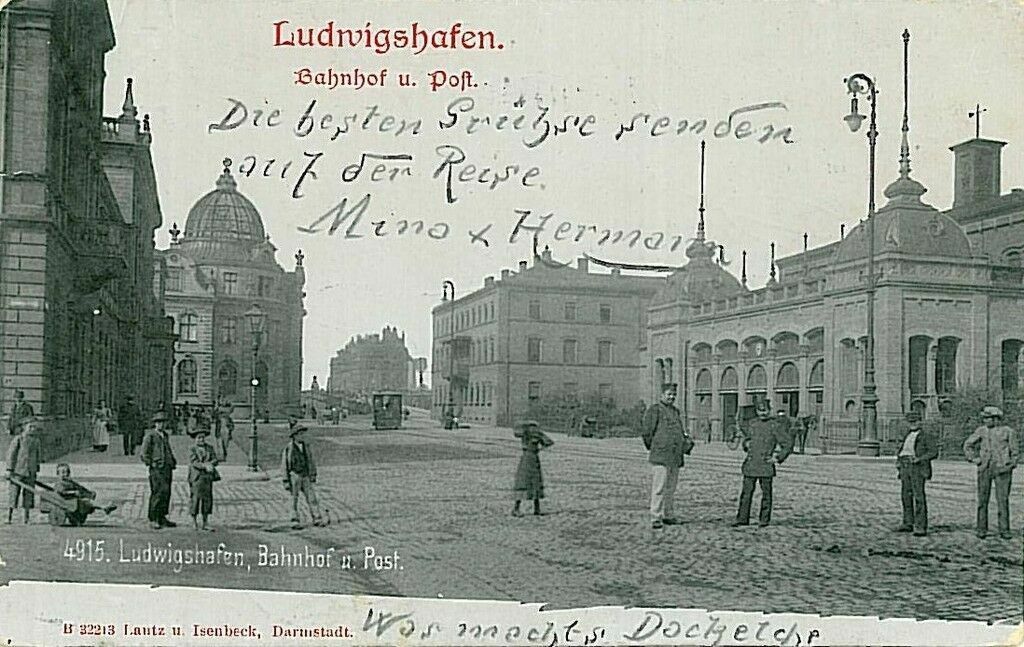 Ludwigshafen.
Bahnhof u. Post.
Die besten Grühse senden
auf der Reise.
Mina & Hermann
4915. Ludwigshafen, Bahnhof u. Post.
B 32213 Lautz u. Isenbeck, Darmstadt.
Was machts